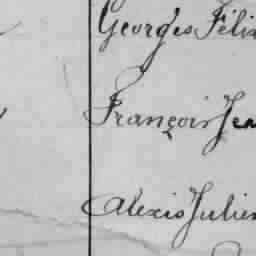 Georges Féli
François Jea
Alexis Julien